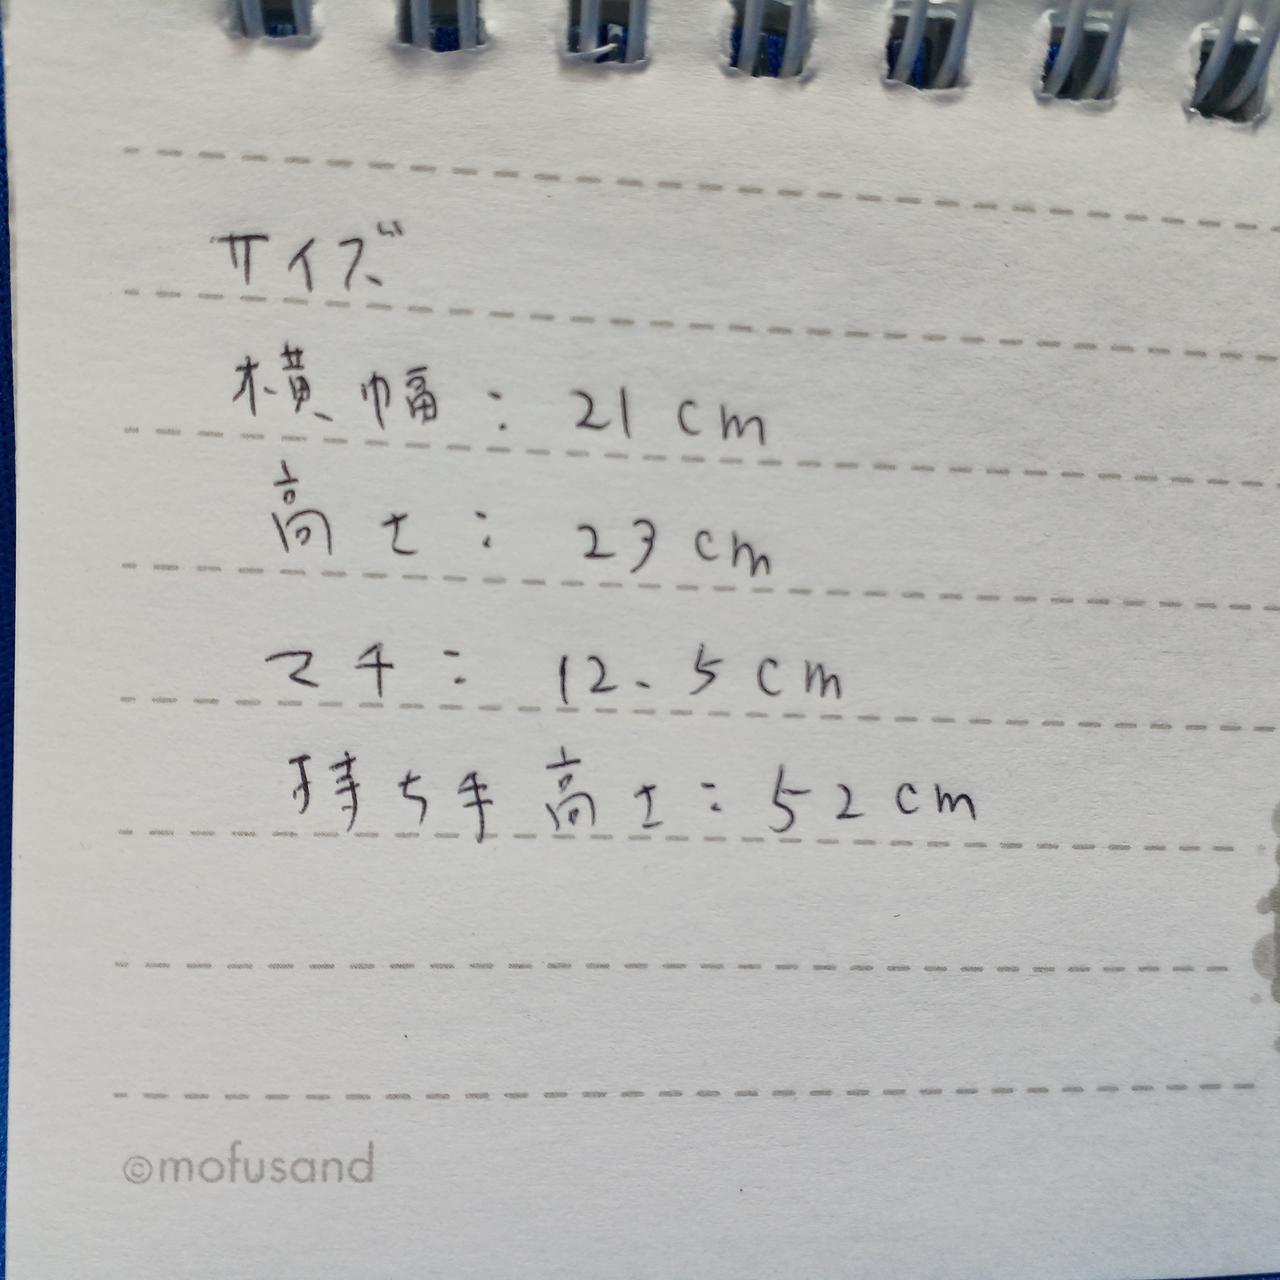 サイズ
横幅：21cm
高さ：23cm
マチ：12.5cm
持ち手高さ：52cm
©mofusand